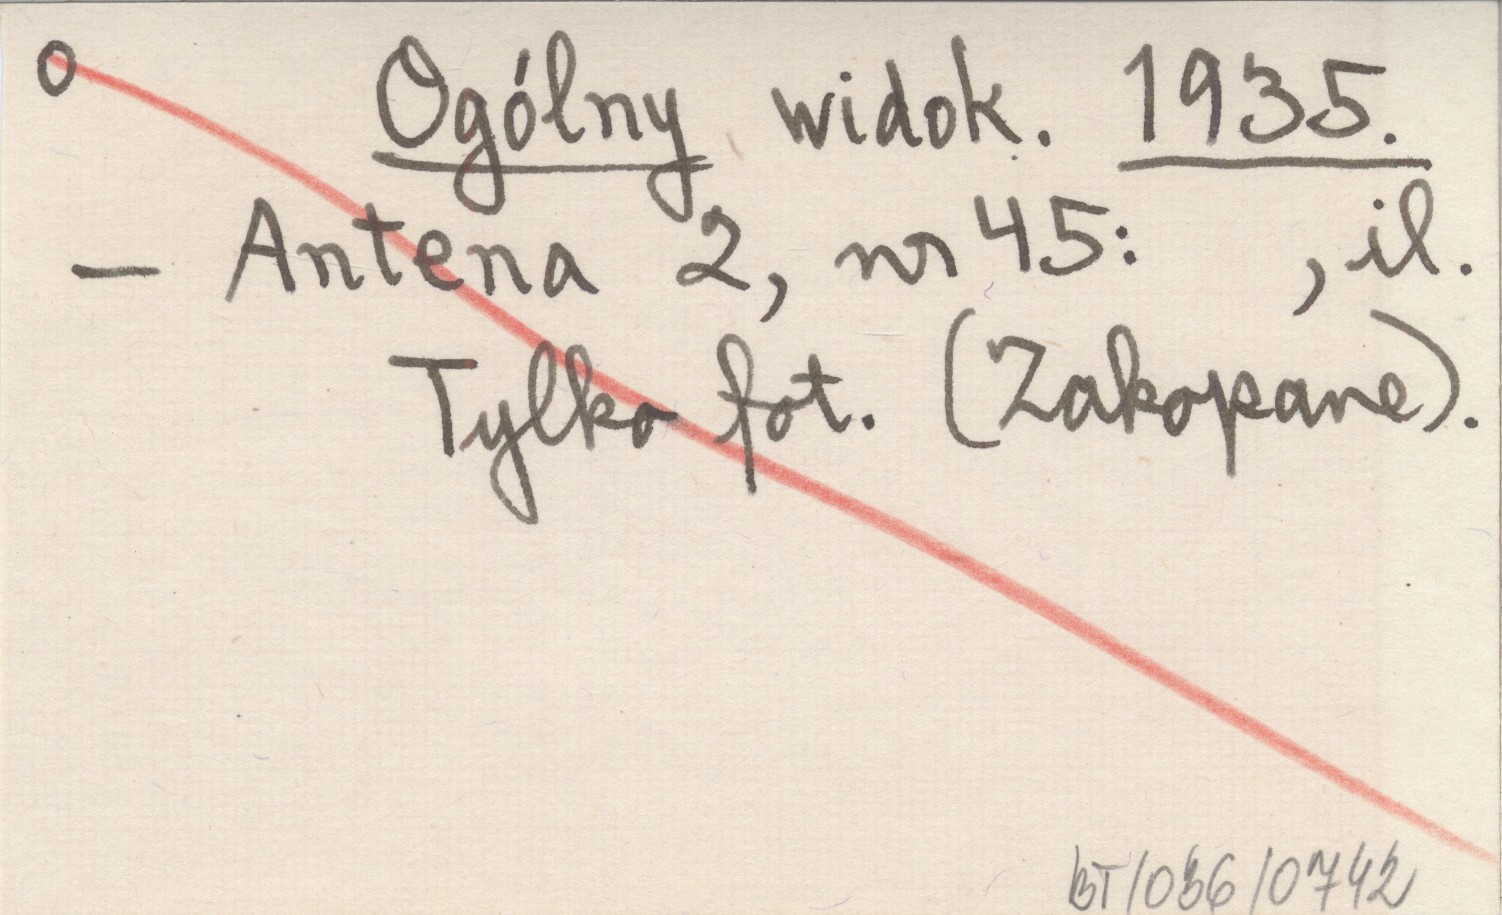 O Ogólny widok. 1935.
— Antena 2, nr 45: , il.
Tylko fot. (Zakopane).
BT/036/0742